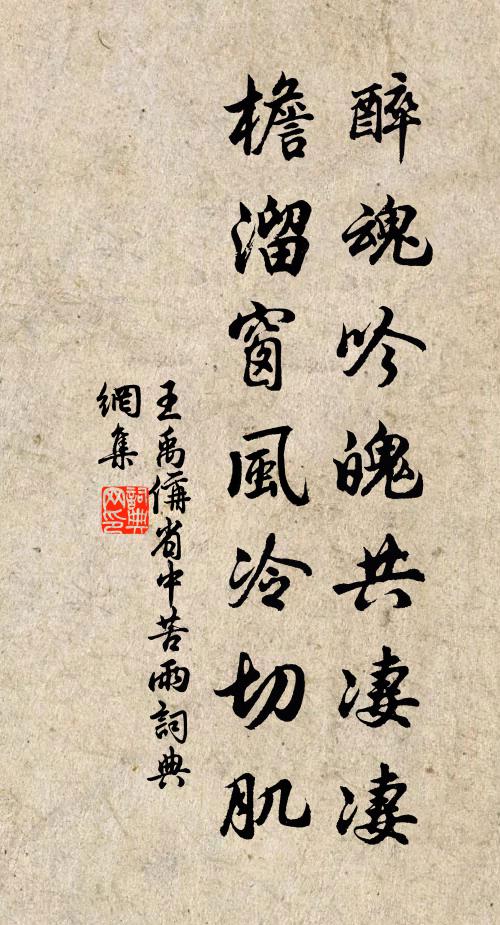 醉魂吟魄共凄凄
檐溜窗風冷切肌
王禹偁省中苦雨詞典
網集
詞典網印